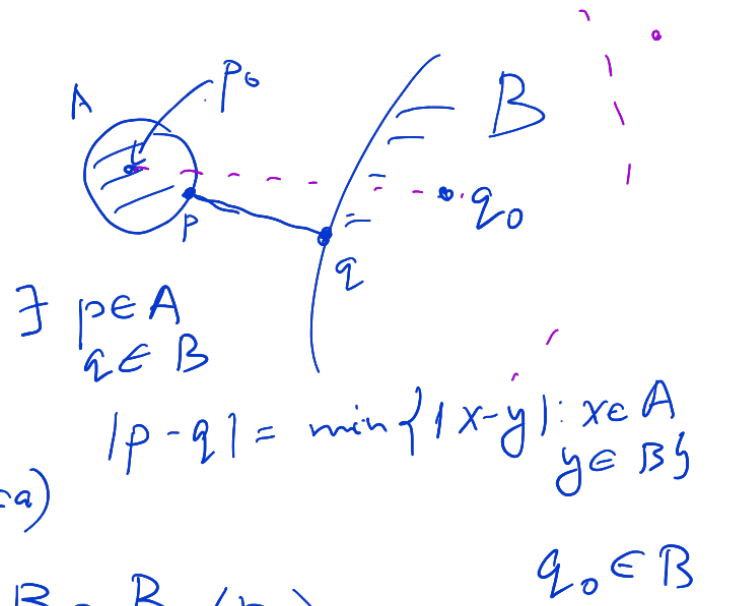 A
p₀
B
q₀
p
q
∃ p∈A
q∈B
|p-q| = min{|x-y|: x∈A
y∈B}
a)
q₀∈B